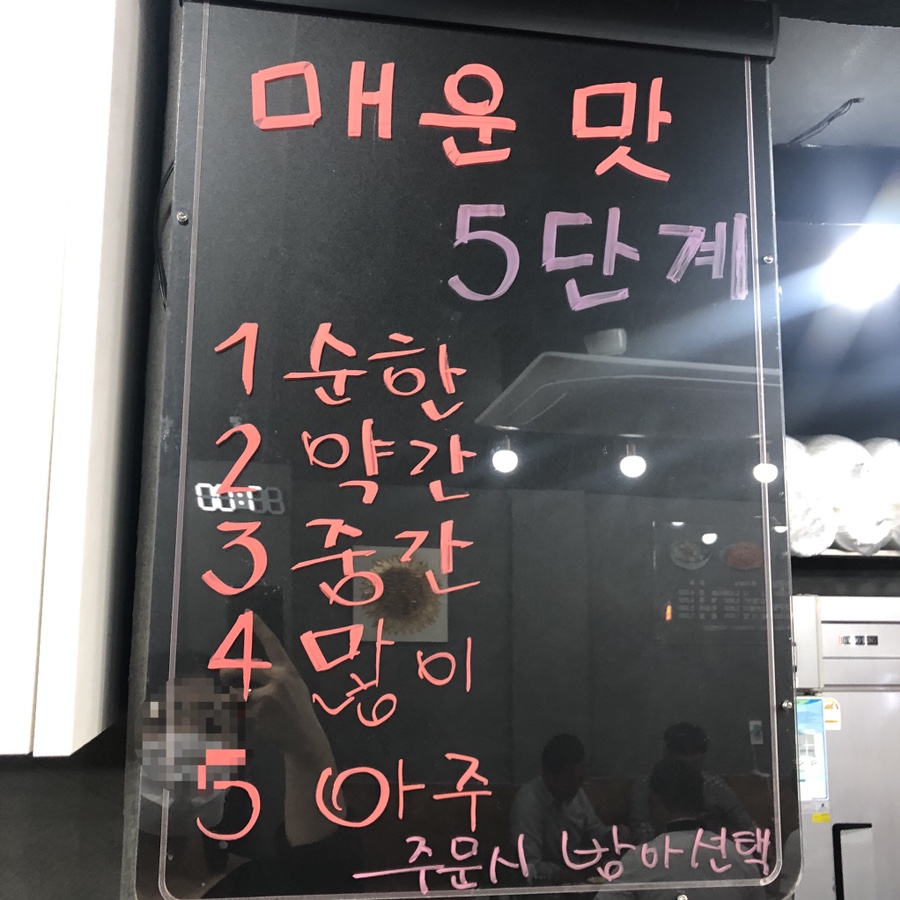 매운 맛
5단계
1 순한
2 약간
3 중간
4 많이
5 아주
주문시 선택